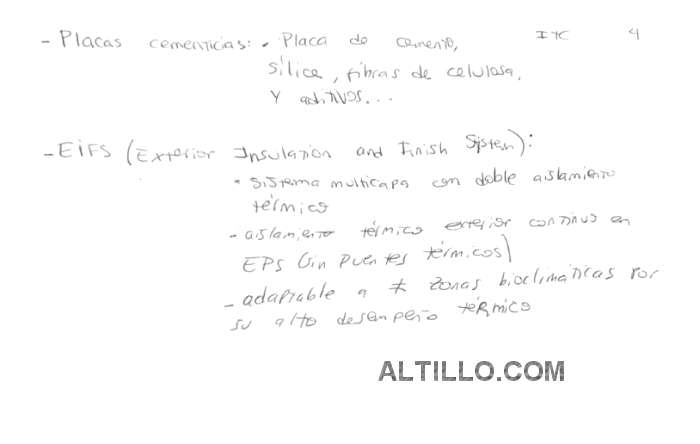 - Placas cementicias: • Placa de cemento, ITC 4
sílice, fibras de celulosa,
y aditivos...
- EIFS (Exterior Insulation and Finish System):
• sistema multicapa con doble aislamiento
térmico
- aislamiento térmico exterior continuo en
EPS (sin puentes térmicos)
- adaptable a ≠ zonas bioclimáticas por
su alto desempeño térmico
ALTILLO.COM